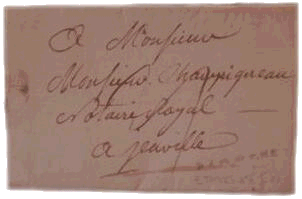 A Monsieur
Monsieur Champigneau
Notaire Royal
a jenville